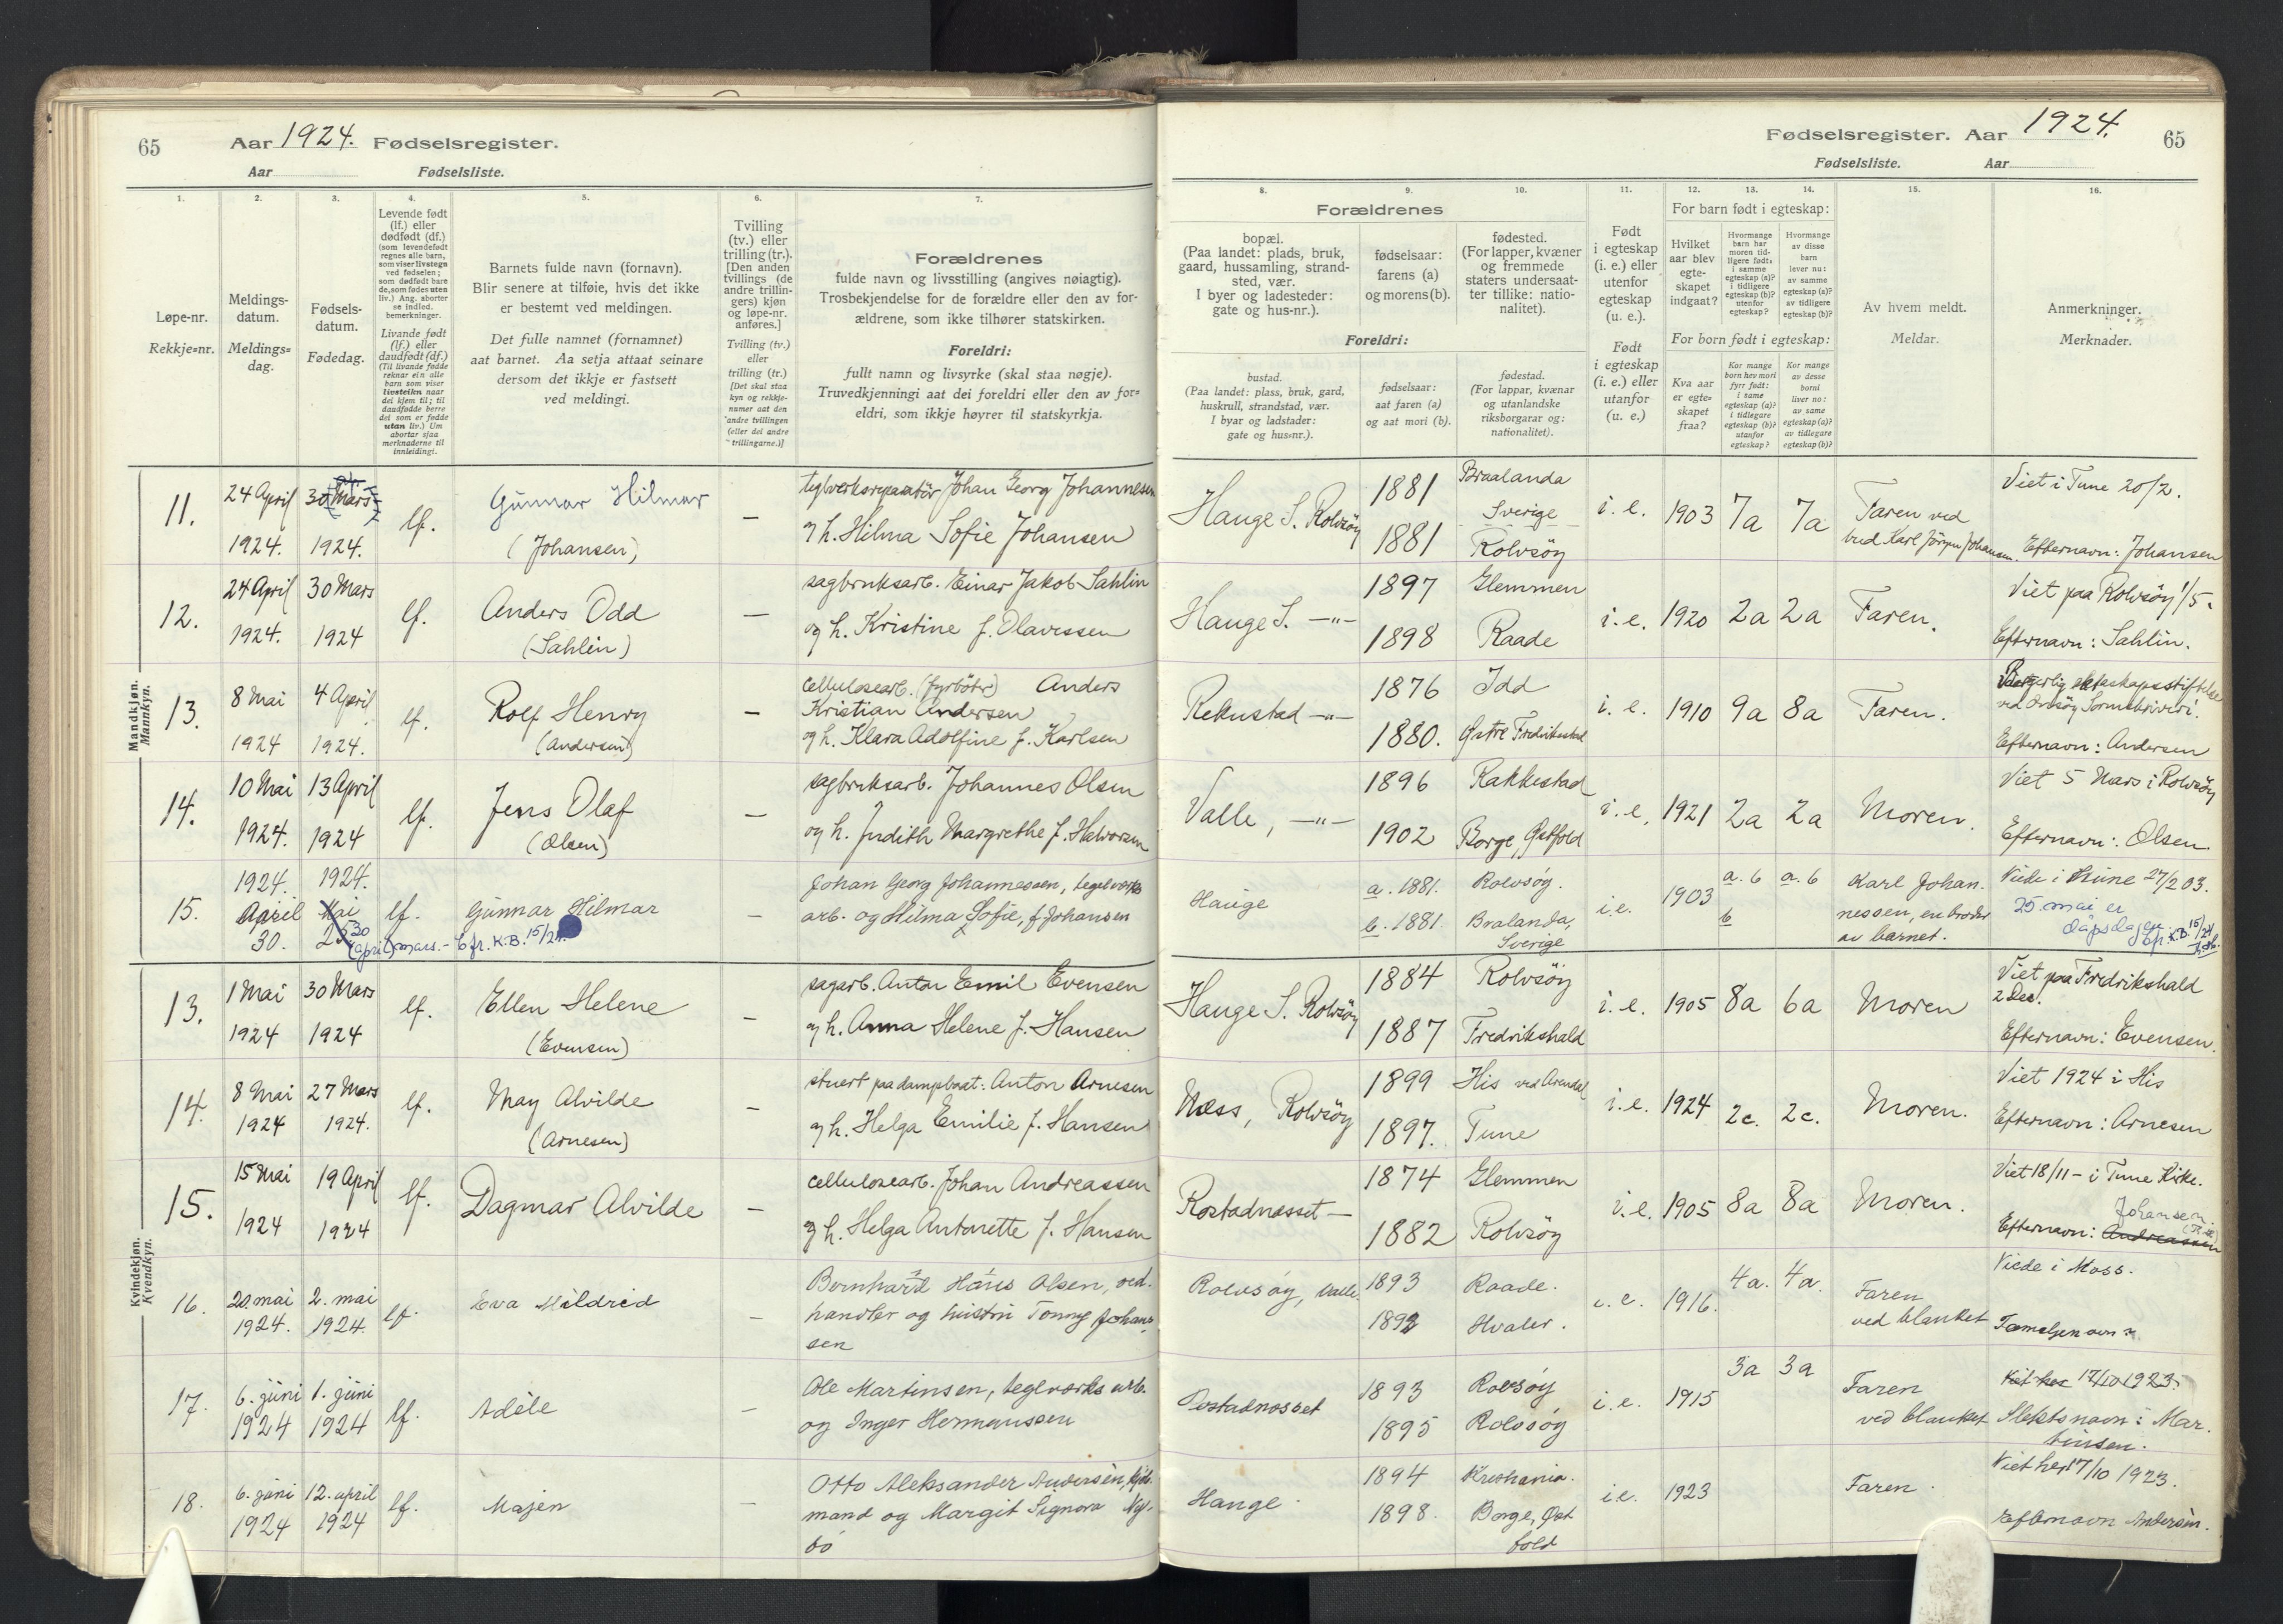 65
Aar 1924. Fødselsregister.
Aar Fødselsliste.
1.
2.
3.
4.
5.
6.
7.
Løpe-nr.
Rekkje=nr.
Meldings-
datum.
Meldings=
dag.
Fødsels-
datum.
Fødedag.
Levende født
(lf.) eller
dødfødt (df.)
(som levendefødt
regnes alle barn,
som viser livstegn
ved fødselen;
som dødfødt bare
de, som fødes uten
liv.) Ang. aborter
se indled.
bemerkninger.
Livande født
(lf.) eller
daudfødt (df.)
(Til livande fødde
reknar ein alle
barn som viser
livsteikn naar
dei kjem til; til
daudfødde berre
dei som er fødde
utan liv.) Um
abortar sjaa
merknaderne til
innleidingi.
Barnets fulde navn (fornavn).
Blir senere at tilføie, hvis det ikke
er bestemt ved meldingen.
Det fulle namnet (fornamnet)
aat barnet. Aa setja attaat seinare
dersom det ikkje er fastsett
ved meldingi.
Tvilling
(tv.) eller
trilling (tr.).
[Den anden
tvillings (de
andre trillin-
gers) kjøn
og løpe-nr.
anføres.]
Tvilling (tv.)
eller
trilling (tr.)
[Det skal staa
kyn og rekkje-
numer aat den
andre tvillingen
(eller dei andre
trillingarne.)]
Forældrenes
fulde navn og livsstilling (angives nøiagtig).
Trosbekjendelse for de forældre eller den av for-
ældrene, som ikke tilhører statskirken.
Foreldri:
fullt namn og livsyrke (skal staa nøgje).
Truvedkjenningi aat dei foreldri eller den av for=
eldri, som ikkje høyrer til statskyrkja.
Fødselsregister. Aar 1924.
65
Fødselsliste. Aar
8.
9.
10.
11.
12.
13.
14.
15.
16.
Forældrenes
bopæl.
(Paa landet: plads, bruk,
gaard, hussamling, strand-
sted, vær.
I byer og ladesteder:
gate og hus-nr.).
fødselsaar:
farens (a)
og morens (b).
fødested.
(For lapper, kvæner
og fremmede
staters undersaat-
ter tillike: natio-
nalitet).
Foreldri:
bustad.
(Paa landet: plass, bruk, gard,
huskrull, strandstad, vær.
I byar og ladstader:
gate og hus=nr.).
fødselsaar:
aat faren (a)
og aat mori (b).
fødestad.
(For lappar, kvænar
og utanlandske
riksborgarar og:
nationalitet).
Født
i egteskap
(i. e.) eller
utenfor
egteskap
(u. e.).
Født
i egteskap
(i. e.) eller
utanfor
(u. e.)
For barn født i egteskap:
Hvilket
aar blev
egte-
skapet
indgaat?
Hvormange
barn har
moren tid-
ligere født:
i samme
egteskap (a)?
i tidligere
egteskap (b)?
utenfor
egteskap?
Hvormange
av disse
barn
lever nu:
av samme
egteskap (a)?
av tidligere
egteskap (b)?
For born født i egteskap:
Kva aar
er egte=
skapet
fraa?
Kor mange
born hev mori
fyrr født:
i same
egteskap (a)?
i tidlegare
egteskap (b)?
utanfor
egteskap?
Kor mange
av desse
borni
liver no:
av same
egteskap (a)?
av tidlegare
egteskap (b)?
Av hvem meldt.
Meldar.
Anmerkninger.
Merknader.
Mandkjøn.
Mannkyn.
11. 24 April 1924. 30 Mars 1924. lf. Gunnar Hilmar (Johansen) — teglverksreparatör Johan Georg Johannesen
og h. Hilma Sofie Johansen
Hauge S. Rolvsöy 1881 1881 Braalanda Sverige Rolvsöy i. e. 1903 7a 7a Faren ved
bud Karl Jörgen Johansen. Viet i Tune 20/2.
Efternavn: Johansen
12. 24 April 1924. 30 Mars 1924 lf. Anders Odd (Sahlin) — sagbruksarb. Einar Jakob Sahlin
og h. Kristine f. Olavessen
Hauge S. —"— 1897 1898 Glemmen Raade i. e. 1920 2a 2a Faren. Viet paa Rolvsöy 1/5.
Efternavn: Sahlin.
13. 8 Mai 1924 4 April 1924. lf. Rolf Henry (Andersen) — Cellulosearb. (fyrböter) Anders
Kristian Andersen
og h. Klara Adolfine f. Karlsen
Rekustad —"— 1876 1880. Idd Østre Fredrikstad i. e. 1910 9a 8a Faren. Borgerlig ektaskapsstiftelse
Efternavn: Andersen
14. 10 Mai 1924. 13 April 1924 lf. Jens Olaf (Olsen) — sagbruksarb. Johannes Olsen
og h. Judith Margrethe f. Halvorsen
Valle, —"— 1896 1902 Rakkestad Borge, Østfold i. e. 1921 2a 2a Moren. Viet 5 Mars i Rolvsöy
Efternavn: Olsen.
15. 1924. April 30. 1924. Mai 25 30 (april) mars. – cfr. K.B. 15/24. lf. Gunnar Hilmar — Johan Georg Johannessen, tegelverks
arb. og Hilma Sofie, f Johansen
Hauge a. 1881. b. 1881. Rolvsøy. Bralanda, Sverige i.e. 1903 a. 6 b a. 6 Karl Johan-
nessen, en broder
av barnet. Viede i Tune 27/2 03.
25. mai er
dåpsdagen.
cfr. K.B. 15/24
Kvindekjøn.
Kvendkyn.
13. 1 Mai 1924 30 Mars 1924 lf. Ellen Helene (Evensen) — sagarb. Anton Emil Evensen
og h. Anna Helene f. Hansen
Hauge S. Rolvsöy 1884 1887 Rolvsöy Fredrikshald i. e. 1905 8a 6a Moren Viet paa Fredrikshald
2 Des.
Efternavn: Evensen.
14. 8 Mai 1924 27 Mars 1924. lf. May Alvilde (Arnesen) — stuert paa dampbaat: Anton Arnesen
og h. Helga Emilie f. Hansen
Næss, Rolvsöy 1899 1897. His ved Arendal Tune i. e. 1924 2c. 2c. Moren. Viet 1924 i His
Efternavn: Arnesen
15. 15 Mai 1924 19 April 1924 lf. Dagmar Alvilde — cellulosearb. Johan Andreassen
og h. Helga Antonette f. Hansen
Rostadnæsset — 1874 1882 Glemmen Rolvsöy i. e. 1905 8a 8a Moren. Viet 18/11 – i Tune Kirke.
Johansen.
Efternavn: Andreassen
16. 20. mai 1924. 2. mai 1924. lf. Eva Mildred — Bernhard Hans Olsen, ved-
handler og hustru Tonny Johan-
sen
Rolvsøy, Valle. 1893 1892 Raade. Hvaler. i. e. 1916. 4a. 4a. Faren
ved blanket Viede i Moss.
17. 6. juni 1924 1. juni 1924 lf. Adèle — Ole Martinsen, teglverks arb.
og Inger Hermanssen
Rostadnesset 1893 1895 Rolvsøy Rolvsøy i. e. 1915 3a 3a Faren
ved blanket Viet her 17/10 1923.
Slektsnavn: Mar-
tinsen.
18. 6. juni 1924 12. april 1924 lf. Majen — Otto Aleksander Andersèn, kjöb-
mand og Margit Signora Ny-
bö
Hauge. 1894 1898. Kristiania. Borge, Øst
fold i.e. 1923 Faren. Viet her 17/10 1923.
Efternavn Andersèn.